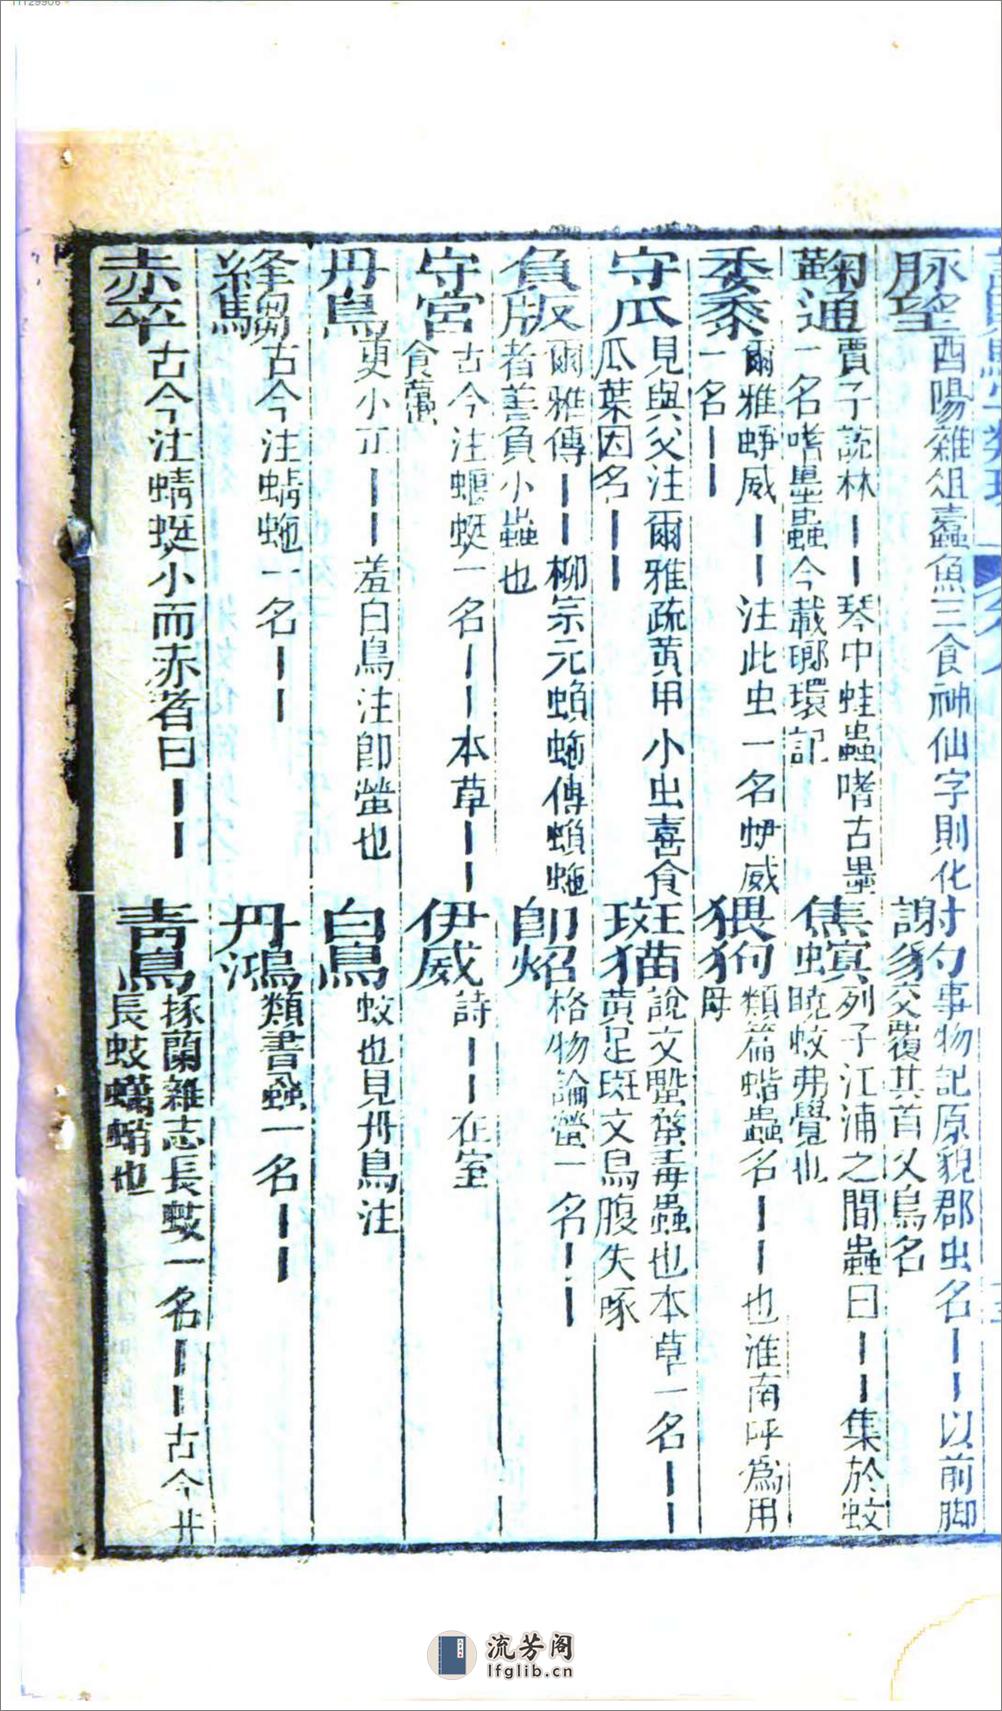 脉望 酉陽雜俎蠧魚三食神仙字則化
謝豹 事物記原貌郡虫名丨丨以前脚
交覆其首又鳥名
鞠通 賈子説林丨丨琴中蛀蟲嗜古墨
一名嗜墨蟲今載瑯環記
焦螟 列子江浦之間蟲曰丨丨集於蚊
虫曉蚊弗覺也
委黍 爾雅蛜威丨丨注此虫一名蛜威
一名丨丨
猥狗 類篇蟲名丨丨也淮南呼為用
母
守瓜 見與父注爾雅疏黄甲小虫喜食
瓜葉因名丨丨
斑猫 說文螌蝥毒蟲也本草一名丨丨
黄足斑文烏腹失啄
負版 爾雅傳丨丨柳宗元蝜蝂傳蝜蝂
者善負小蟲也
卽炤 格物論螢一名丨丨
守宫 古今注蝘蜓一名丨丨本草丨丨
食蠆
伊威 詩丨丨在室
丹鳥 夏小正丨丨羞白鳥注卽螢也
白鳥 蚊也見丹鳥注
絳騶 古今注蜻蜓一名丨丨
丹鴻 類書蟲一名丨丨
赤卒 古今注蜻蜓小而赤者曰丨丨
青鳥 採蘭雜志長蚊一名丨丨古今廾
長蚊蠨蛸也
流芳阁
lfglib.cn